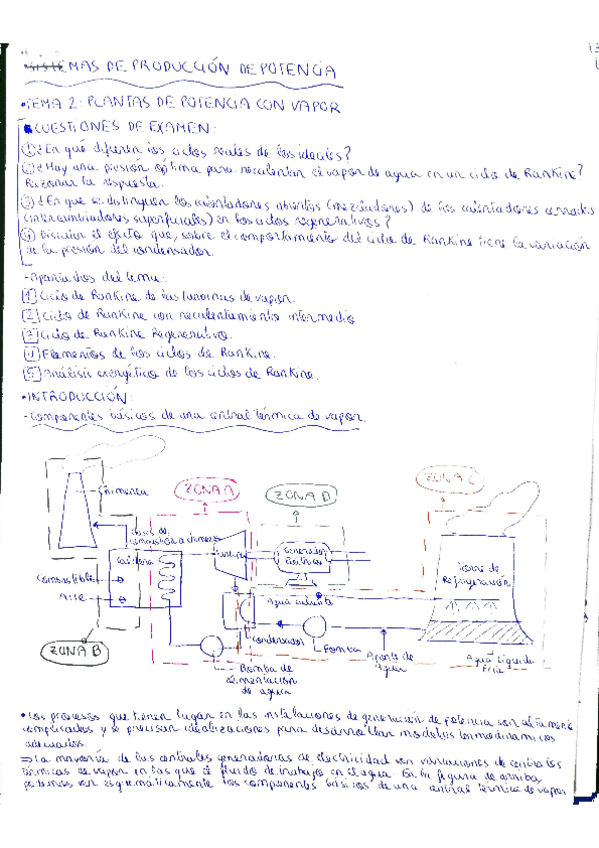 SISTEMAS DE PRODUCCIÓN DE POTENCIA
•TEMA 2: PLANTAS DE POTENCIA CON VAPOR
CUESTIONES DE EXAMEN:
① ¿En qué difieren los ciclos reales de los ideales?
② ¿Hay una presión óptima para recalentar el vapor de agua en un ciclo de Rankine?
Razonar la respuesta.
③ ¿En que se distinguen los calentadores abiertos (mezcladores) de los calentadores cerrados
(intercambiadores superficiales) en los ciclos regenerativos?
④ Discutir el efecto que, sobre el comportamiento del ciclo de Rankine tiene la variación
de la presión del condensador.
-Apartados del tema:
1 Ciclo de Rankine de las turbinas de vapor.
2 Ciclo de Rankine con recalentamiento intermedio
3 Ciclo de Rankine Regenerativo.
4 Elementos de los ciclos de Rankine.
5 Análisis exergético de los ciclos de Rankine.
•INTRODUCCIÓN:
-Componentes básicos de una central térmica de vapor.
ZONA A
ZONA D
ZONA C
chimenea
Gases de
combustión a chimenea
Caldera
Turbina
Generador
Eléctrico
Torre de
Refrigeración
Combustible
Aire
Agua caliente
Condensador
Bomba
ZONA B
Bomba de
alimentación
de agua
Aporte de
Agua
Agua líquida
Fría
•Los procesos que tienen lugar en las instalaciones de generación de potencia son altamente
complicados y se precisan idealizaciones para desarrollar modelos termodinámicos
adecuados.
⇒ La mayoría de las centrales generadoras de electricidad son variaciones de centrales
térmicas de vapor en las que el fluido de trabajo en el agua. En la figura de arriba
podemos ver esquemáticamente los componentes básicos de una central térmica de vapor